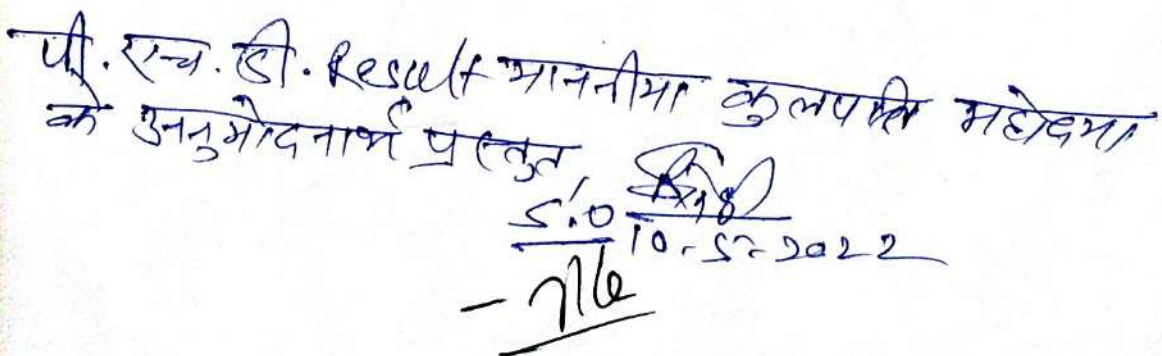 पी. एच. डी. Result माननीया कुलपति महोदया
के अनुमोदनार्थ प्रस्तुत
S.O
10.5.2022